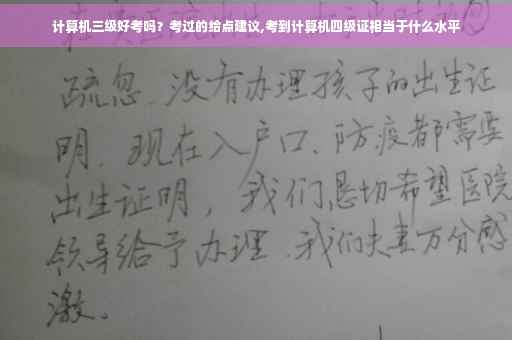 计算机三级好考吗？考过的给点建议,考到计算机四级证相当于什么水平
疏忽、没有办理孩子的出生证
明、现在入户口、防疫都需要
出生证明，我们恳切希望医院
领导给予办理、我们夫妻万分感
激。